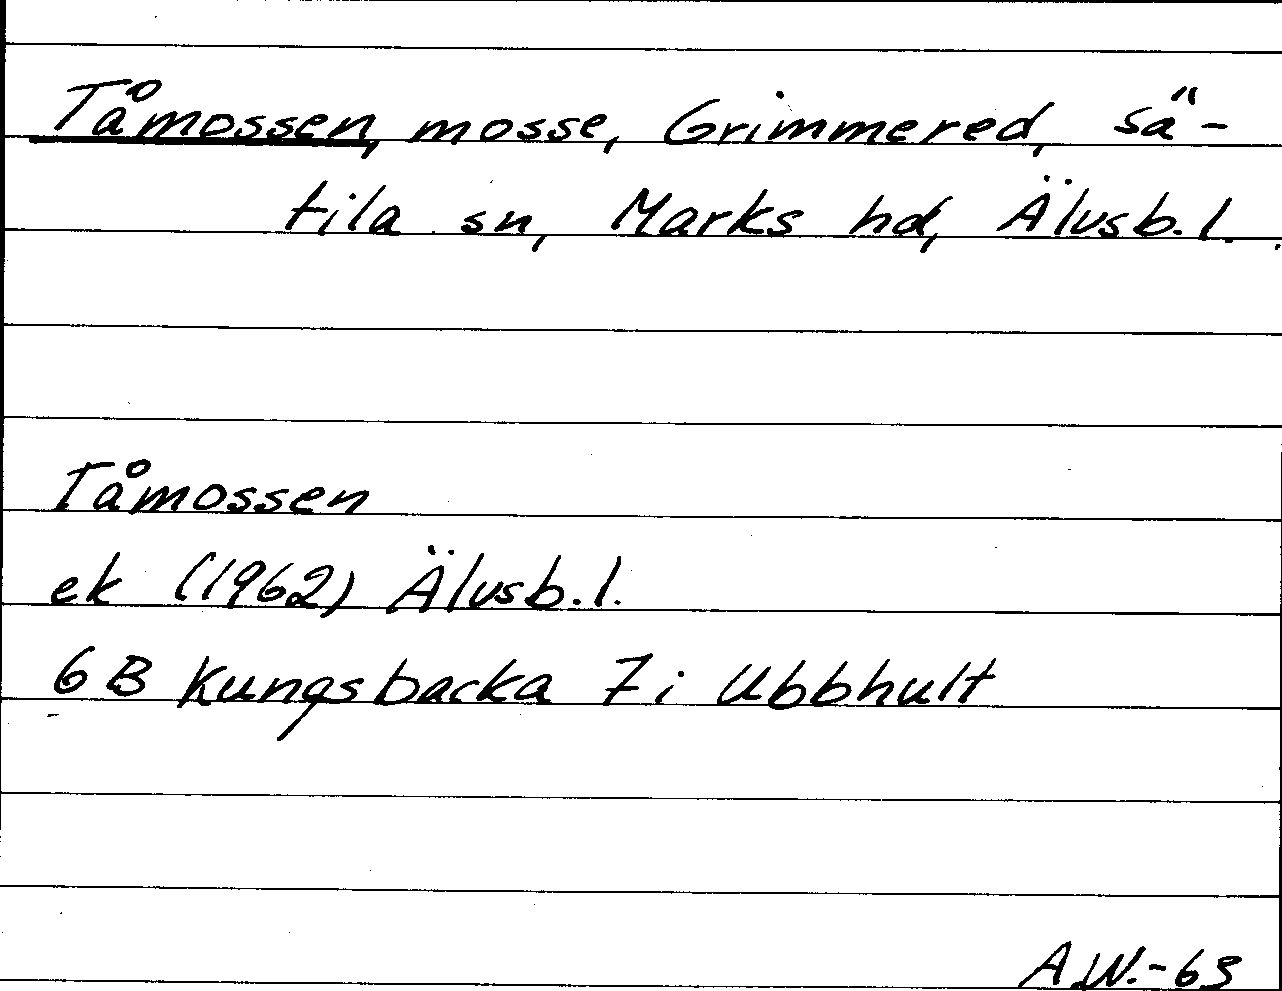 Tåmossen, mosse, Grimmered, Sä-
tila sn, Marks hd, Älvsb. l.
Tåmossen
ek (1962) Älvsb. l.
6 B Kungsbacka 7 i Ubbhult
A.W.-63